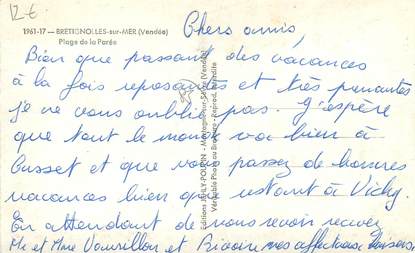 12 €
1961-17 — BRETIGNOLLES-sur-MER (Vendée)
Plage de la Parée
Chers amis,
Bien que passant des vacances
à la fois reposantes et très prenantes
je ne vous oublie pas. J'espère
que tout le monde va bien à
Cusset et que vous passez de bonnes
vacances bien que restant à Vichy.
En attendant de vous revoir recevez
Mr et Mme et mes affectueux baisers.
Editions JEHLY-POUPIN - Mortagne-sur-Sèvre (Vendée)
Véritable Photo au Bromure - Reprod. interdite